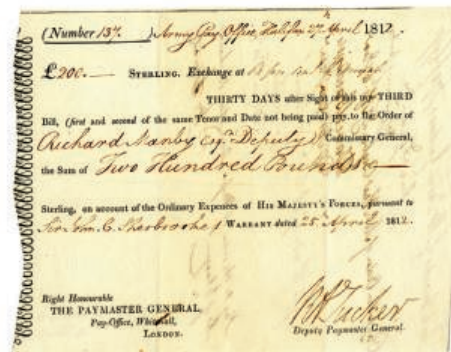 (Number 137. ) Army Pay Office, Halifax 27 April 1812.
£200.— STERLING. Exchange at
THIRTY DAYS after Sight of this my THIRD
Bill, (first and second of the same Tenor and Date not being paid) pay to the Order of
Richard Manby Esqr. Deputy Commissary General,
the Sum of Two Hundred Pounds
Sterling, on account of the Ordinary Expences of HIS MAJESTY'S FORCES, pursuant to
Sir John C. Sherbrooke's WARRANT dated 25th April 1812.
Right Honourable
THE PAYMASTER GENERAL,
Pay-Office, Whitehall,
LONDON.
Tucker
Deputy Paymaster General.